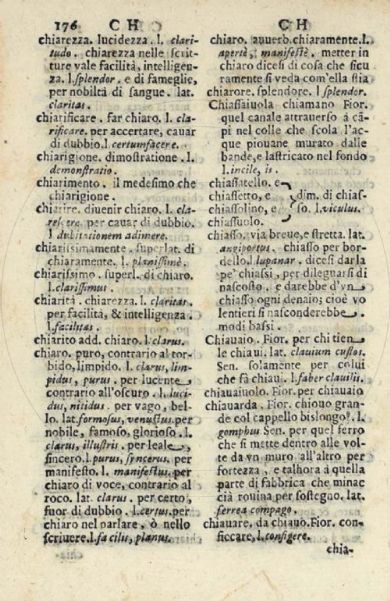 176 C H
C H
chiarezza. lucidezza. l. clari-
tudo. chiarezza nelle scrit-
ture vale facilità, intelligen-
za. l. splendor. e di famegliе,
per nobiltà di sangue. lat.
claritas.
chiarificare. far chiaro. l. cla-
rificare. per accertare, cauar
di dubbio. l. certumfacere.
chiarigione. dimostratione. l.
demonstratio.
chiarimento. il medesimo che
chiarigione.
chiarire. diuenir chiaro. l. cla-
rescere. per cauar di dubbio.
l. dubitationem adimere.
chiarissimamente. superlat. di
chiaramente. l. planissimè.
chiarissimo. superl. di chiaro.
l. clarissimus.
chiarità. chiarezza. l. claritas.
per facilità, & intelligenza.
l. facilitas.
chiarito add. chiaro. l. clarus.
chiaro. puro, contrario al tor-
bido, limpido. l. clarus, lim-
pidus, purus. per lucente
contrario all'oscuro. l. luci-
dus, nitidus. per vago, bel-
lo. lat. formosus, venustus. per
nobile, famoso, glorioso. l.
clarus, illustris. per leale,
sincero. l. purus, syncerus. per
manifesto. l. manifestus. per
chiaro di voce, contrario al
roco. lat. clarus. per certo,
fuor di dubbio. l. certus. per
chiaro nel parlare, ò nello
scriuere. l. facilis, planus.
chiaro. auuerb. chiaramente. l.
apertè, manifestè. metter in
chiaro dicesi di cosa che sicu
ramente si veda com'ella stia
chiarore. splendore. l. splendor.
Chiassaiuola chiamano Fior.
quel canale attrauerso a cā-
pi nel colle che scola l'ac-
que piouane murato dalle
bande, e lastricato nel fondo
l. incile, is.
chiassatello. e
chiassetto, e
chiassolino, e
chiassuolo.
dim. di chias-
so. l. viculus.
chiasso, via breue, e stretta. lat.
angiportus. chiasso per bor-
dello. lupanar. dicesi darla
pe' chiassi, per dileguarsi di
nascosto. e darebbe d'vn
chiasso ogni denaio; cioè vo
lentieri si nasconderebbe.
modi bassi.
Chiauaio. Fior. per chi tien
le chiaui. lat. clauium custos.
Sen. solamente per colui
che fà chiaui. l. faber clauilis.
chiauaiuolo. Fior. per chiauaio
chiauarda. Fior. chiouo gran-
de col cappello bislongo. l.
gomphus Sen. per quel ferro
che si mette dentro alle vol-
te da vn muro all'altro per
fortezza, e talhora à quella
parte di fabbrica che minac
cia rouina per sostegno. lat.
ferrea compago.
chiauare. da chiauo. Fior. con-
ficcare, l. configere.
chia-